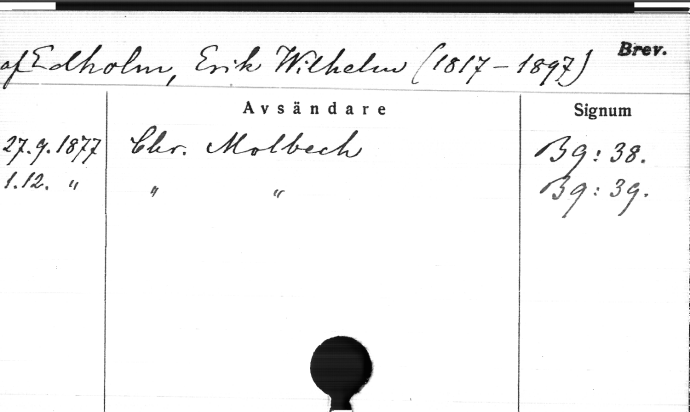 af Edholm, Erik Wilhelm (1817–1897) Brev.
Avsändare Signum
27.9.1877 Chr. Molbech Bg: 38.
1.12. " " " Bg: 39.